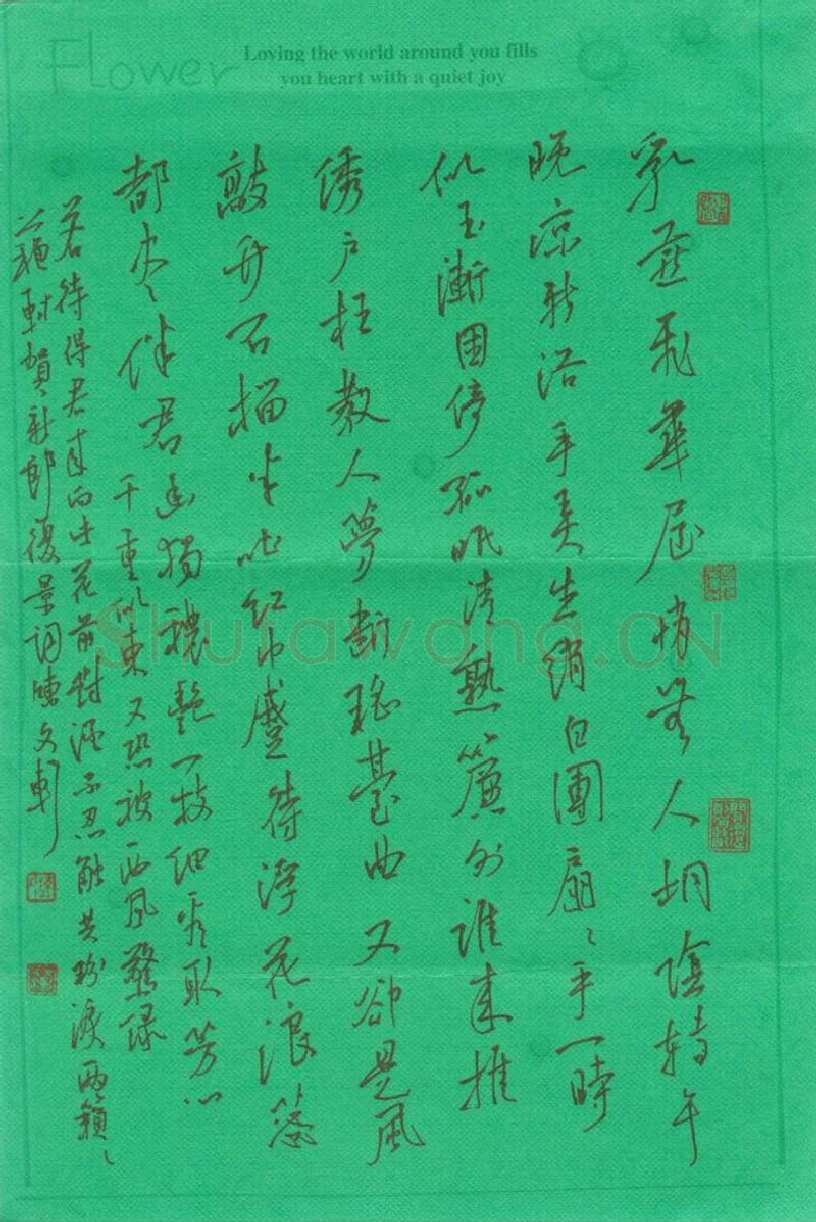 Flower
Loving the world around you fills
you heart with a quiet joy
乳燕飛華屋悄無人桐陰轉午
晚凉新浴手弄生綃白團扇〻手一時
似玉漸困倚孤眠清熟簾外誰來推
绣户枉教人夢斷瑶臺曲又卻是風
敲竹石榴半吐红巾蹙待浮花浪蕊
都尽伴君幽獨穠艷一枝细看取芳心
千重似束又恐被西風驚绿
若待得君来向此花前對酒不忍觸共粉淚两簌〻
蘇軾賀新郎夏景词陳文軒
Shufawang.CN